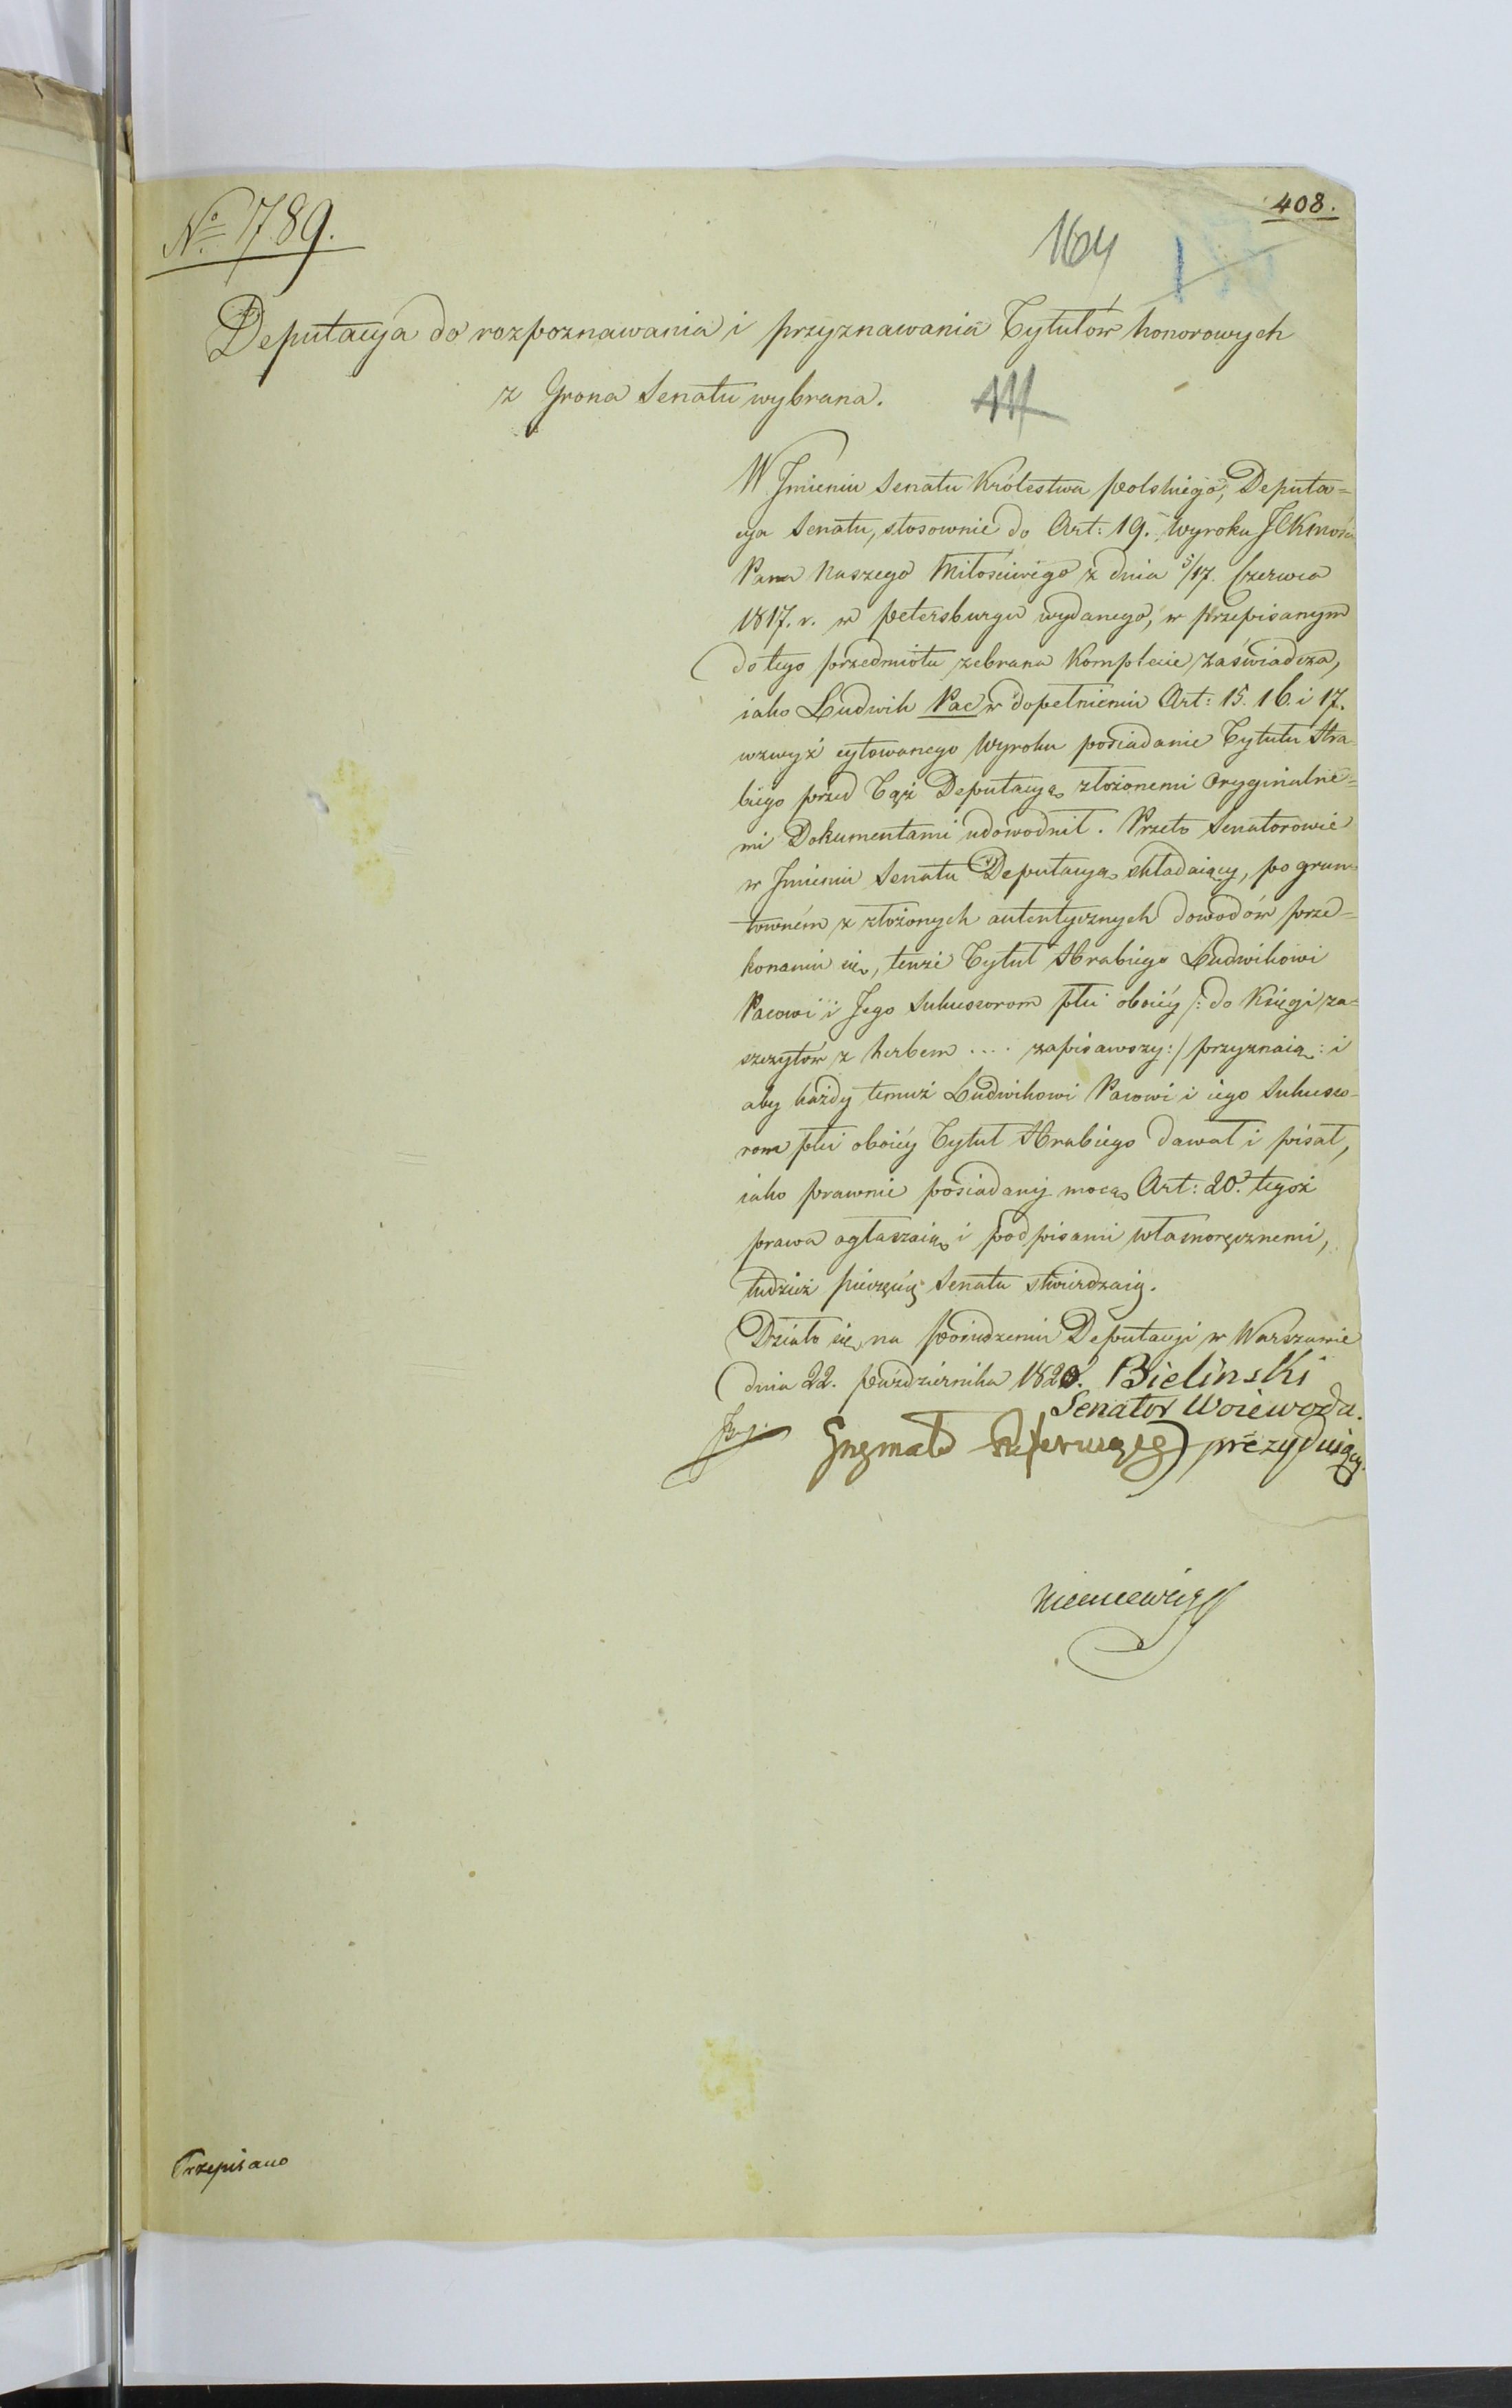 408.
No 1789.
164
Deputacya do rozpoznawania i przyznawania Tytułów honorowych
z Grona Senatu wybrana.
W Jmieniu Senatu Królestwa Polskiego, Deputa=
cya Senatu, stosownie do Art: 19. Wyroku JCKmości
Pana Naszego Miłościwego z dnia 5/17. Czerwca
1817. r. w Petersburgu wydanego, w przepisanym
do tego przedmiotu zebrana Komplecie zaświadcza,
iako Ludwik Pac w dopełnieniu Art: 15. 16. i 17.
wzwyż cytowanego Wyroku posiadanie Tytułu Hra
biego przed Tąż Deputacyą złożonemi Oryginalne=
mi Dokumentami udowodnił. Przeto Senatorowie
w Jmieniu Senatu Deputacyą składaiący, po grun
towném z złożonych autentycznych dowodów prze=
konaniu się, tenże Tytuł Hrabiego Ludwikowi
Pacowi i Jego Sukcessorom płci oboiéy /: do Księgi za=
szczytów z herbem .... zapisawszy :/ przyznaią: i
aby każdy temuż Ludwikowi Pacowi i iego Sukcesso-
rom płci oboiéy Tytuł Hrabiego dawał i pisał,
iako prawnie posiadany mocą Art: 20. tegoż
prawa ogłaszaią i podpisami własnoręcznemi,
tudzież pieczęcią Senatu stwierdzaią.
Działo się na Posiedzeniu Deputacyi w Warszawie
dnia 22. Października 1820. Bielinski
Senator Woiewoda.
prezyduiący.
Niemcewicz
Przepisano